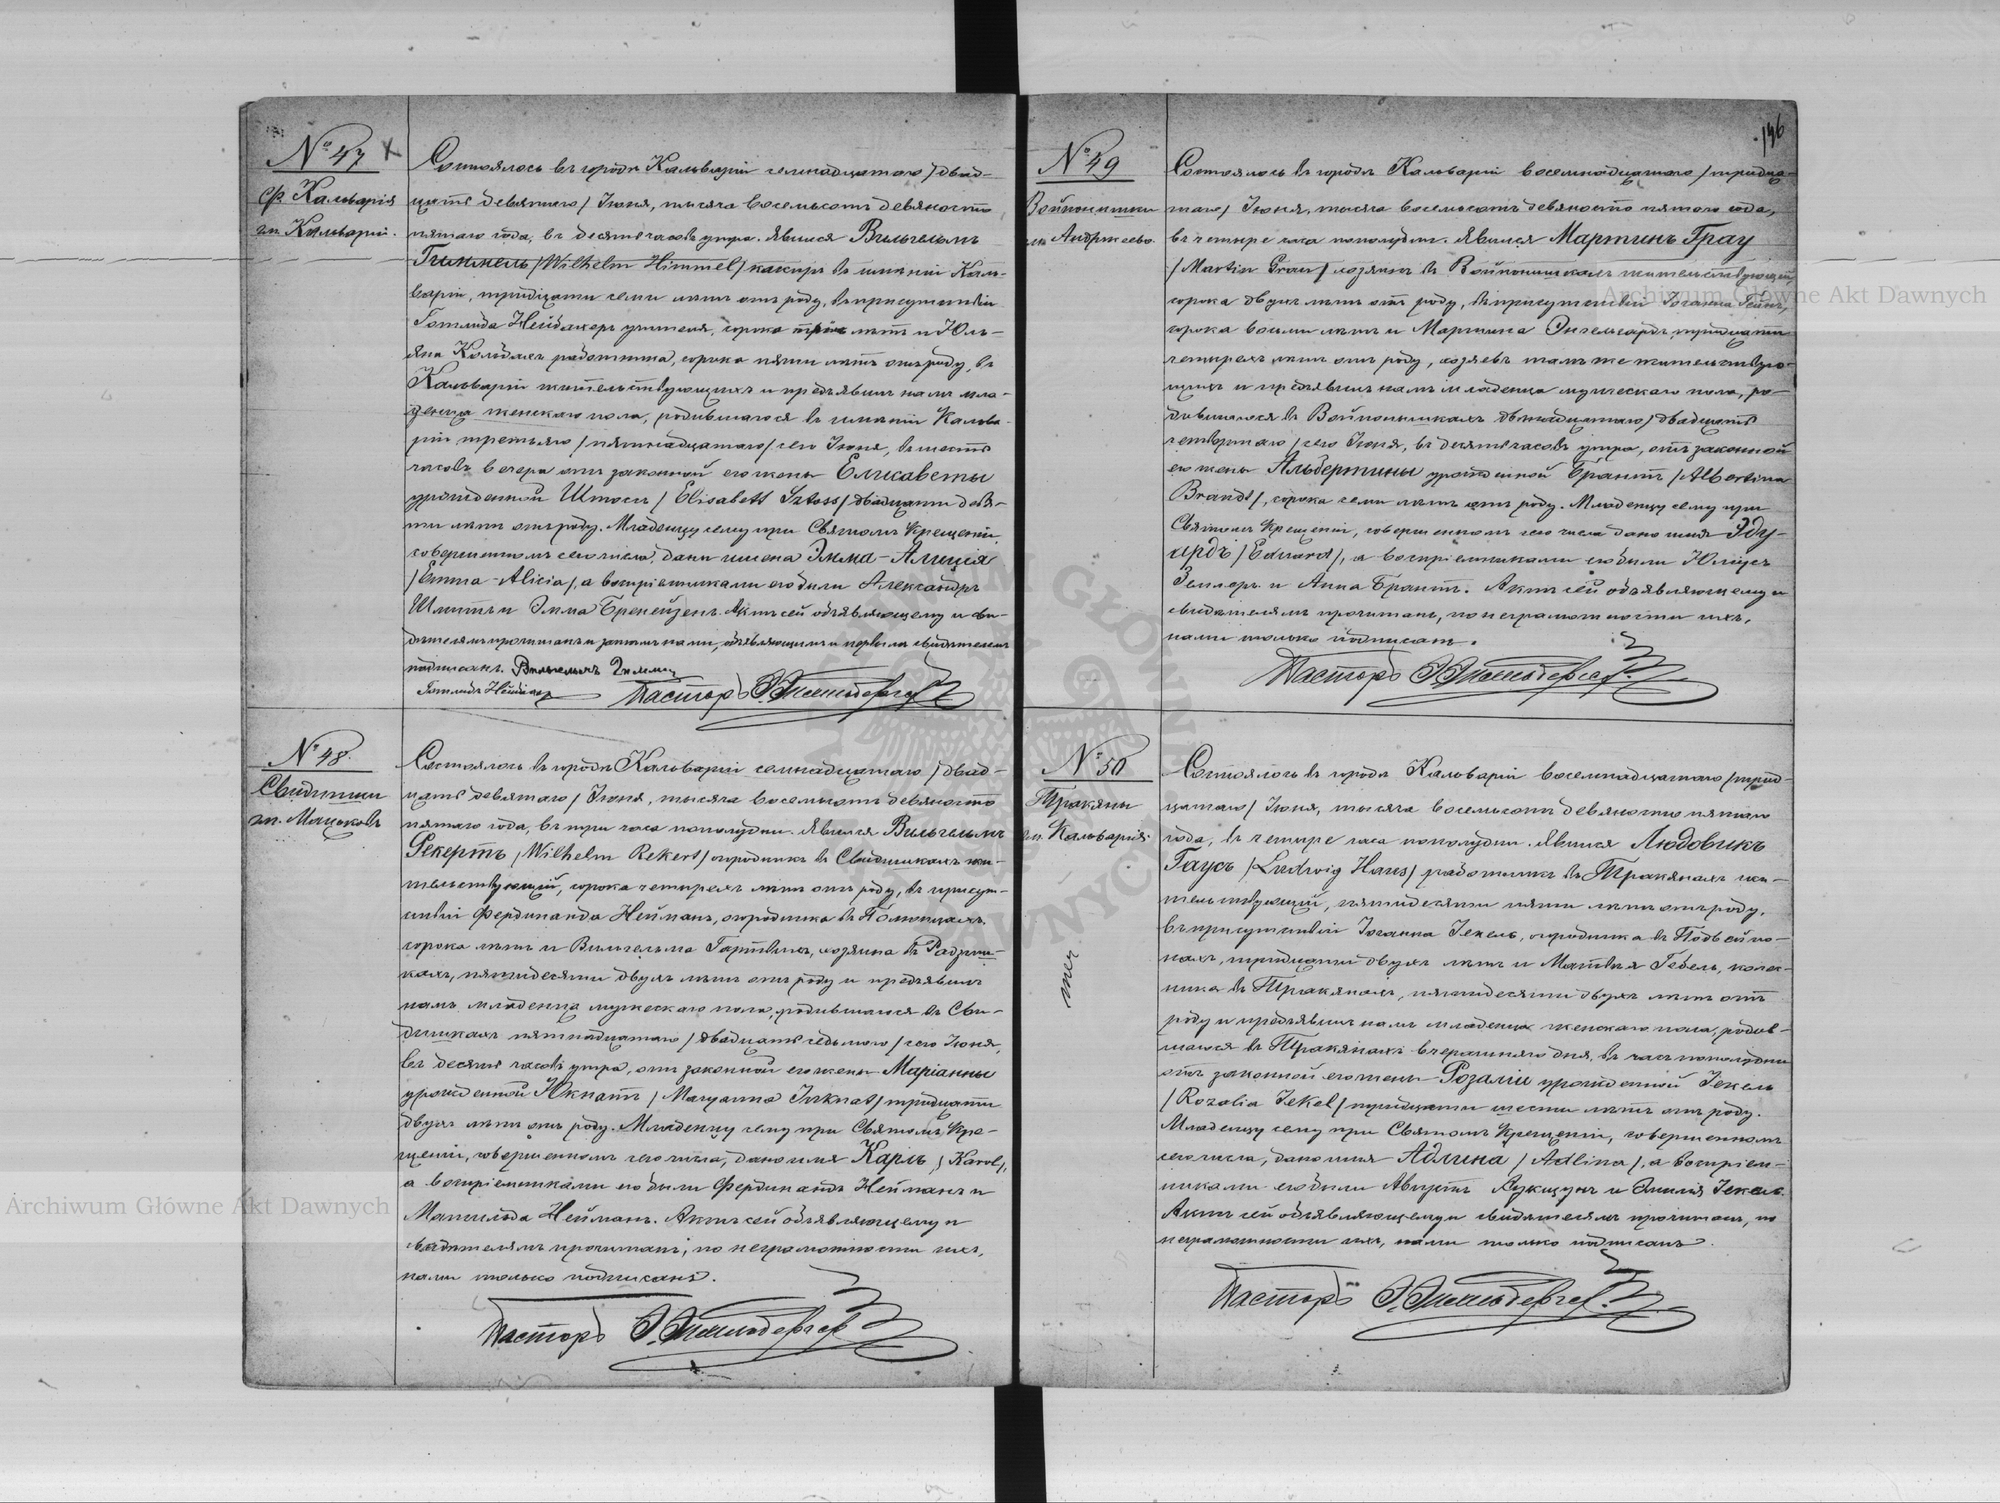 № 47
ф. Кальварія
гм. Кальварія.
Состоялось въ городѣ Кальваріи семнадцатаго /двад-
цать девятаго/ Іюня, тысяча восемьсотъ девяносто
пятаго года, въ десять часовъ утра. Явился Вильгельмъ
Гиммель /Wilhelm Himmel/ въ имѣніи Каль-
варіи, тридцати семи лѣтъ отъ роду, въ присутствіи
Готлиба Нейбахеръ учителя, сорока лѣтъ и Юль-
яна работника, сорока пяти лѣтъ отъ роду, въ
Кальваріи жительствующихъ и предъявилъ намъ мла-
денца женскаго пола, родившагося въ имѣніи Кальва-
ріи третьяго /пятнадцатаго/ сего Іюня, въ шесть
часовъ вечера отъ законной его жены Елисаветы
урожденной Штоссъ /Elisabeth Sztoss/ двадцати девя-
ти лѣтъ отъ роду. Младенцу сему при Святомъ Крещеніи,
совершенномъ сего числа, даны имена Эмма-Алиція
/Emma-Alicia/, а воспріемниками его были Александръ
Шмитъ и Эмма Актъ сей объявляющему и сви-
дѣтелямъ прочитанъ и затѣмъ нами, объявляющимъ и первымъ свидѣтелемъ
подписанъ. Вильгельмъ Гиммель
Готлибъ Нейбахеръ Пасторъ
№ 48.
Свидзишки
гм.
Состоялось въ городѣ Кальваріи семнадцатаго /двад-
цать девятаго/ Іюня, тысяча восемьсотъ девяносто
пятаго года, въ три часа пополудни. Явился Вильгельмъ
Рекертъ /Wilhelm Rekert/ огродникъ въ Свидзишкахъ жи-
тельствующій, сорока четырехъ лѣтъ отъ роду, въ присут-
ствіи Фердинанда Нейманъ, огродника въ
сорока лѣтъ и Вильгельма Гартвихъ, хозяина въ Радзиш-
кахъ, пятидесяти двухъ лѣтъ отъ роду и предъявилъ
намъ младенца мужескаго пола, родившагося въ Сви-
дзишкахъ пятнадцатаго /двадцать седьмого/ сего Іюня,
въ десять часовъ утра, отъ законной его жены Маріанны
урожденной Юкнатъ /Maryanna Juknat/ тридцати
двухъ лѣтъ отъ роду. Младенцу сему при Святомъ Кре-
щеніи, совершенномъ сего числа, дано имя Карлъ /Karol/,
а воспріемниками его были Фердинандъ Нейманъ и
Матильда Нейманъ. Актъ сей объявляющему и
свидѣтелямъ прочитанъ, по неграмотности ихъ,
нами только подписанъ.
Пасторъ
136
№ 49
Войпонишки
гм. Андржеево.
Состоялось въ городѣ Кальваріи восемнадцатаго /тридца-
таго/ Іюня, тысяча восемьсотъ девяносто пятаго года,
въ четыре часа пополудни. Явился Мартинъ Грау
/Martin Grau/ хозяинъ въ Войпонишкахъ жительствующій,
сорока двухъ лѣтъ отъ роду, въ присутствіи Іоганна Гейнъ,
сорока восьми лѣтъ и Мартина Энгельгардъ, тридцати
четырехъ лѣтъ отъ роду, хозяевъ тамъ же жительствую-
щихъ и предъявилъ намъ младенца мужескаго пола, ро-
дившагося въ Войпонишкахъ двѣнадцатаго /двадцать
четвертаго/ сего Іюня, въ десять часовъ утра, отъ законной
его жены Альбертины урожденной Брантъ /Albertina
Brandt/, сорока семи лѣтъ отъ роду. Младенцу сему при
Святомъ Крещеніи, совершенномъ сего числа дано имя Эду-
ардъ /Eduard/, а воспріемниками его были Юліусъ
Земперъ и Анна Брантъ. Актъ сей объявляющему и
свидѣтелямъ прочитанъ, по неграмотности ихъ,
нами только подписанъ.
Пасторъ
№ 50
Тракяны
гм. Кальварія.
Состоялось въ городѣ Кальваріи восемнадцатаго /трид-
цатаго/ Іюня, тысяча восемьсотъ девяносто пятаго
года, въ четыре часа пополудни. Явился Людовикъ
Гаусъ /Ludwig Haus/ работникъ въ Тракянахъ жи-
тельствующій, пятидесяти пяти лѣтъ отъ роду,
въ присутствіи Іоганна Іекель, огродника въ
тридцати двухъ лѣтъ и Матвѣя Гебель,
въ Тракянахъ, пятидесяти двухъ лѣтъ отъ
роду и предъявилъ намъ младенца женскаго пола, родив-
шагося въ Тракянахъ вчерашняго дня, въ часъ пополудни
отъ законной его жены Розаліи урожденной Іекель
/Rozalia Jekel/ тридцати шести лѣтъ отъ роду.
Младенцу сему при Святомъ Крещеніи, совершенномъ
сего числа, дано имя Адлина /Adlina/, а воспріем-
никами его были Августъ и Эмилія Іекель.
Актъ сей объявляющему и свидѣтелямъ прочитанъ, по
неграмотности ихъ, нами только подписанъ.
Пасторъ
Archiwum Główne Akt Dawnych
Archiwum Główne Akt Dawnych